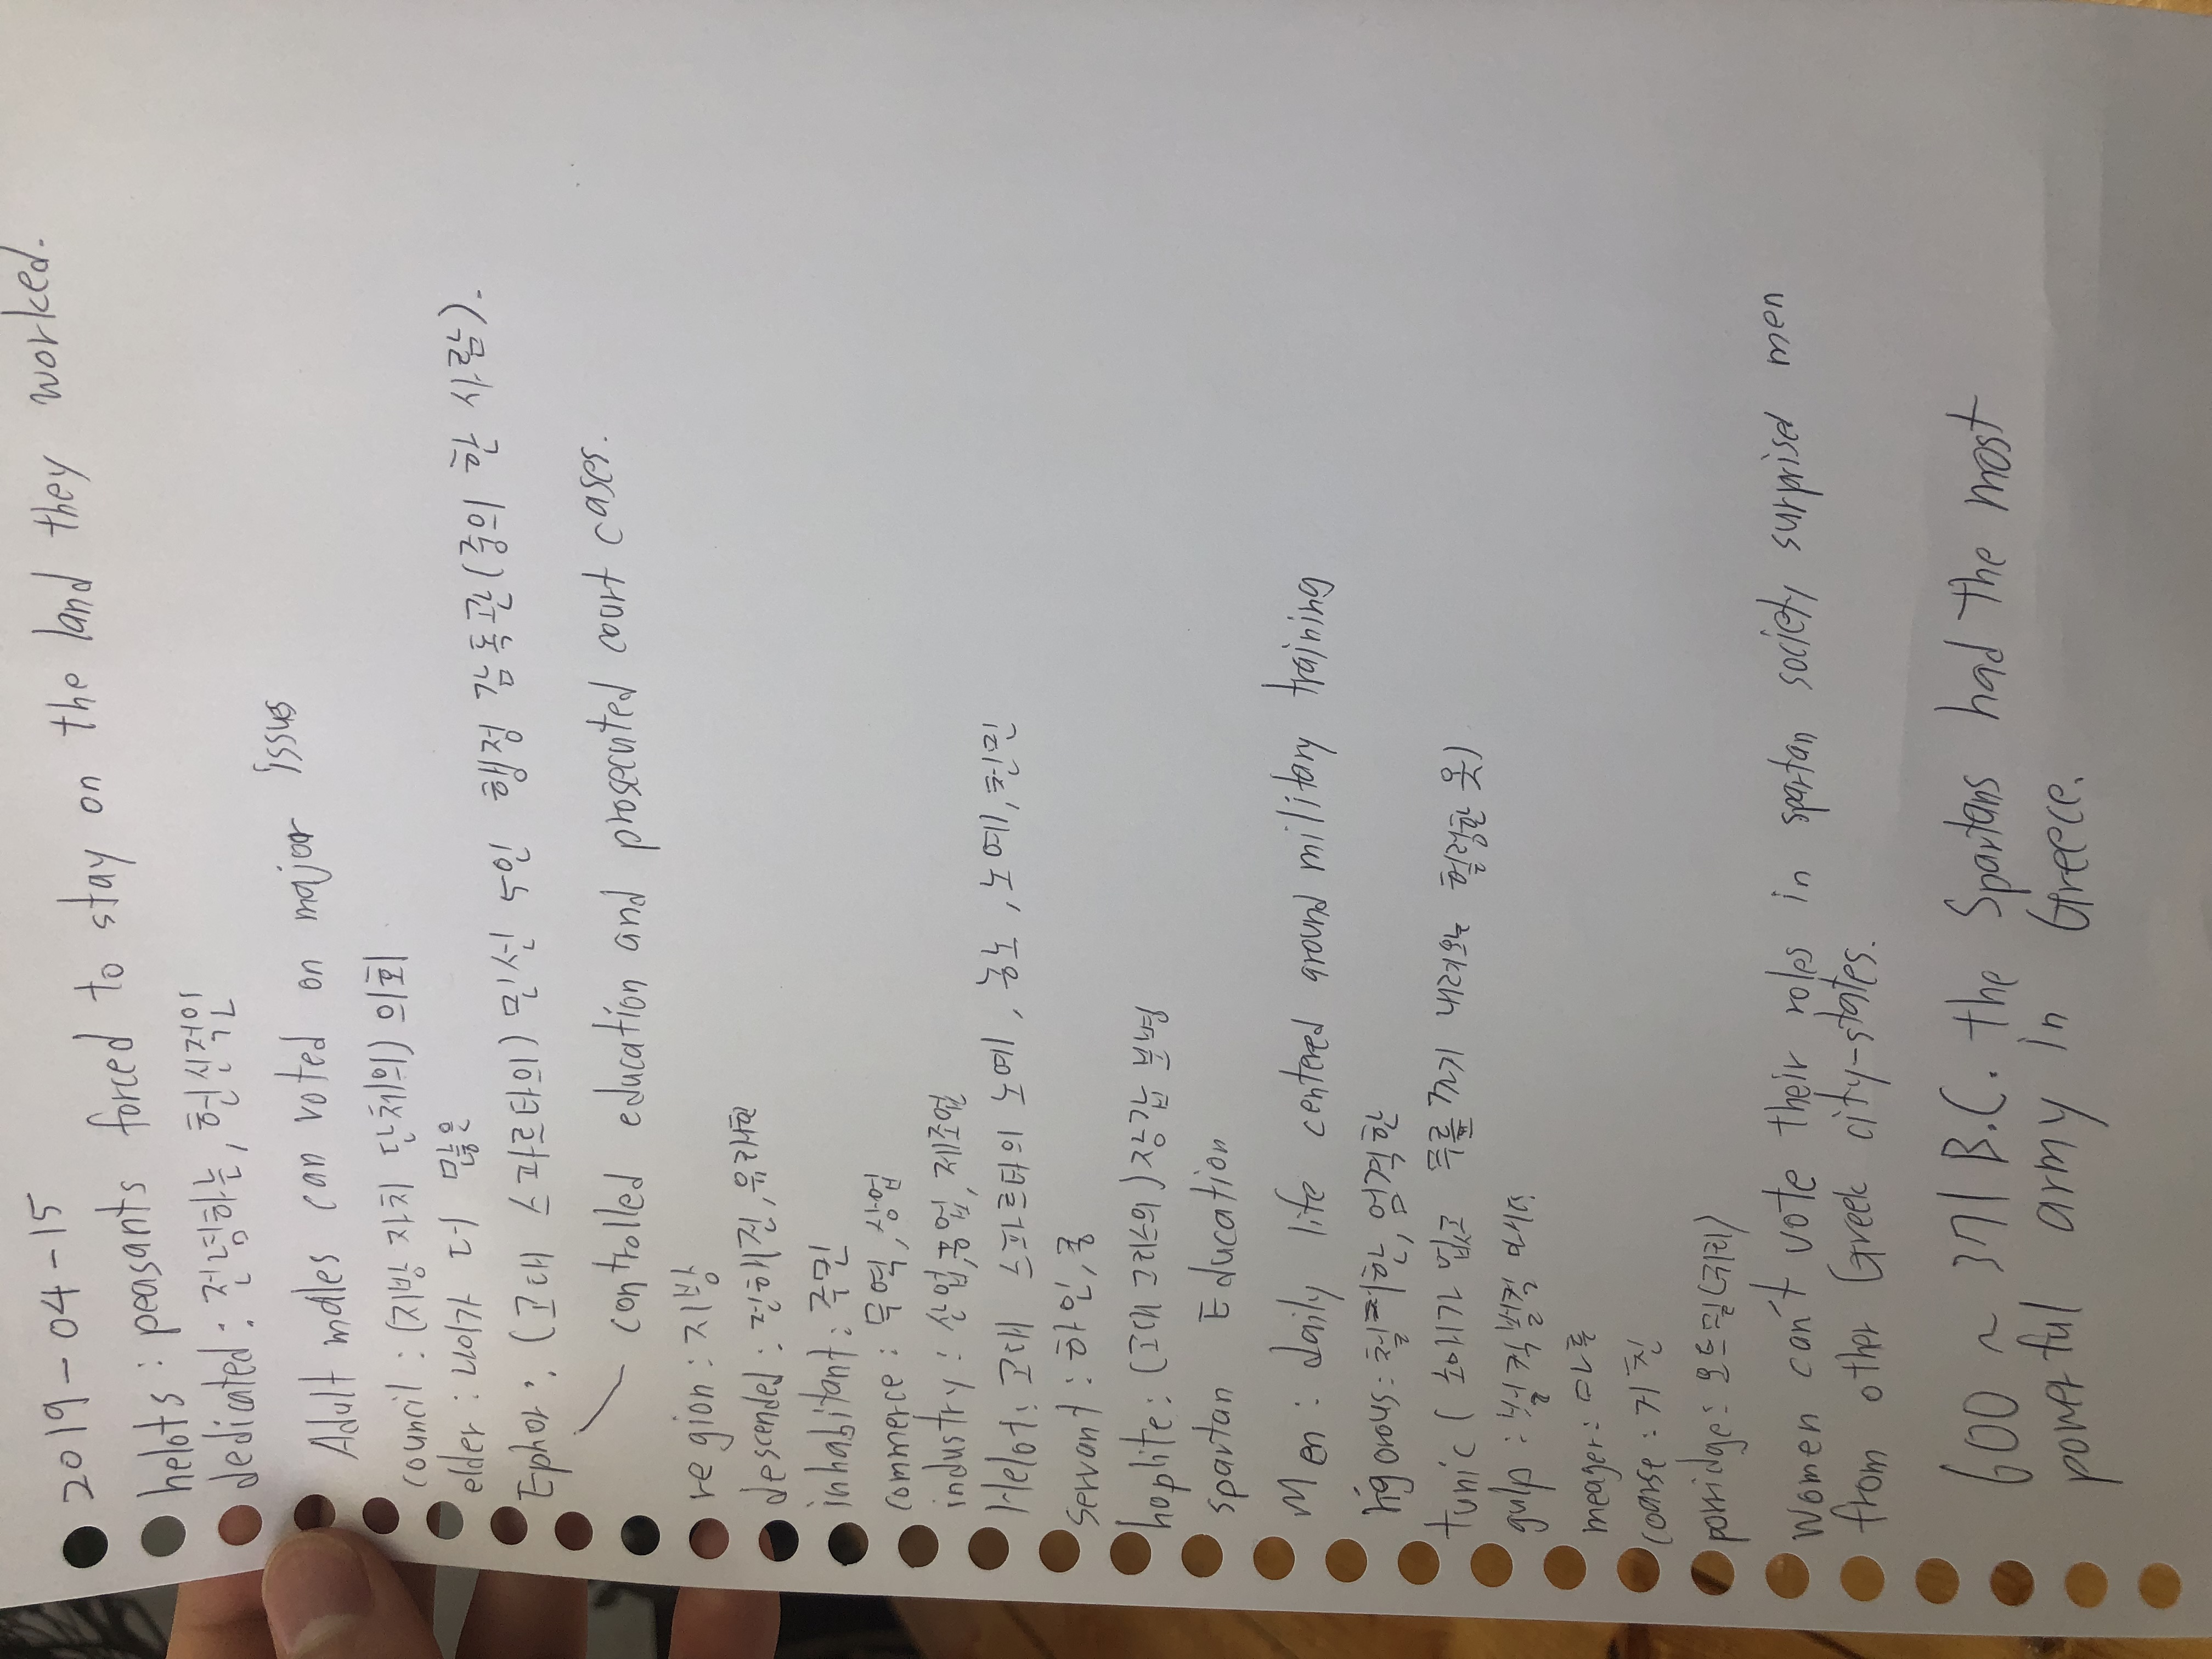 2019-04-15
helots : peasants forced to stay on the land they worked.
dedicated : 전념하는, 헌신적인
Adult males can voted on major issus
council : (지방 자치 단체의) 의회
elder : 나이가 더 많은
Ephor : (고대 스파르타의) 민선 5인 행정 감독관(중의 한 사람).
controlled education and prosecuted court cases.
region : 지방
descended : 전해진, 유래한
inhabitant : 주민
commerce : 무역, 상업
industry : 산업, 공업, 제조업
Helot : 고대 스파르타의 노예, 농노, 노예, 천민
servant : 하인, 종
hoplite : (고대 그리스의) 장갑 보병
spartan Education
Men : daily life centered around military training
rigorous : 철저한, 엄격한
tunic ( 소매가 없고 무릎까지 내려오는 헐렁한 옷)
gulp : 벌컥벌컥
meager :
coarse : 거친
porridge : 오트밀(귀리)
Women can't vote their roles in spartan society surprised men
from other Greek city-states.
600 ~ 371 B.C. the Spartans had the most
powerful army in Greece.